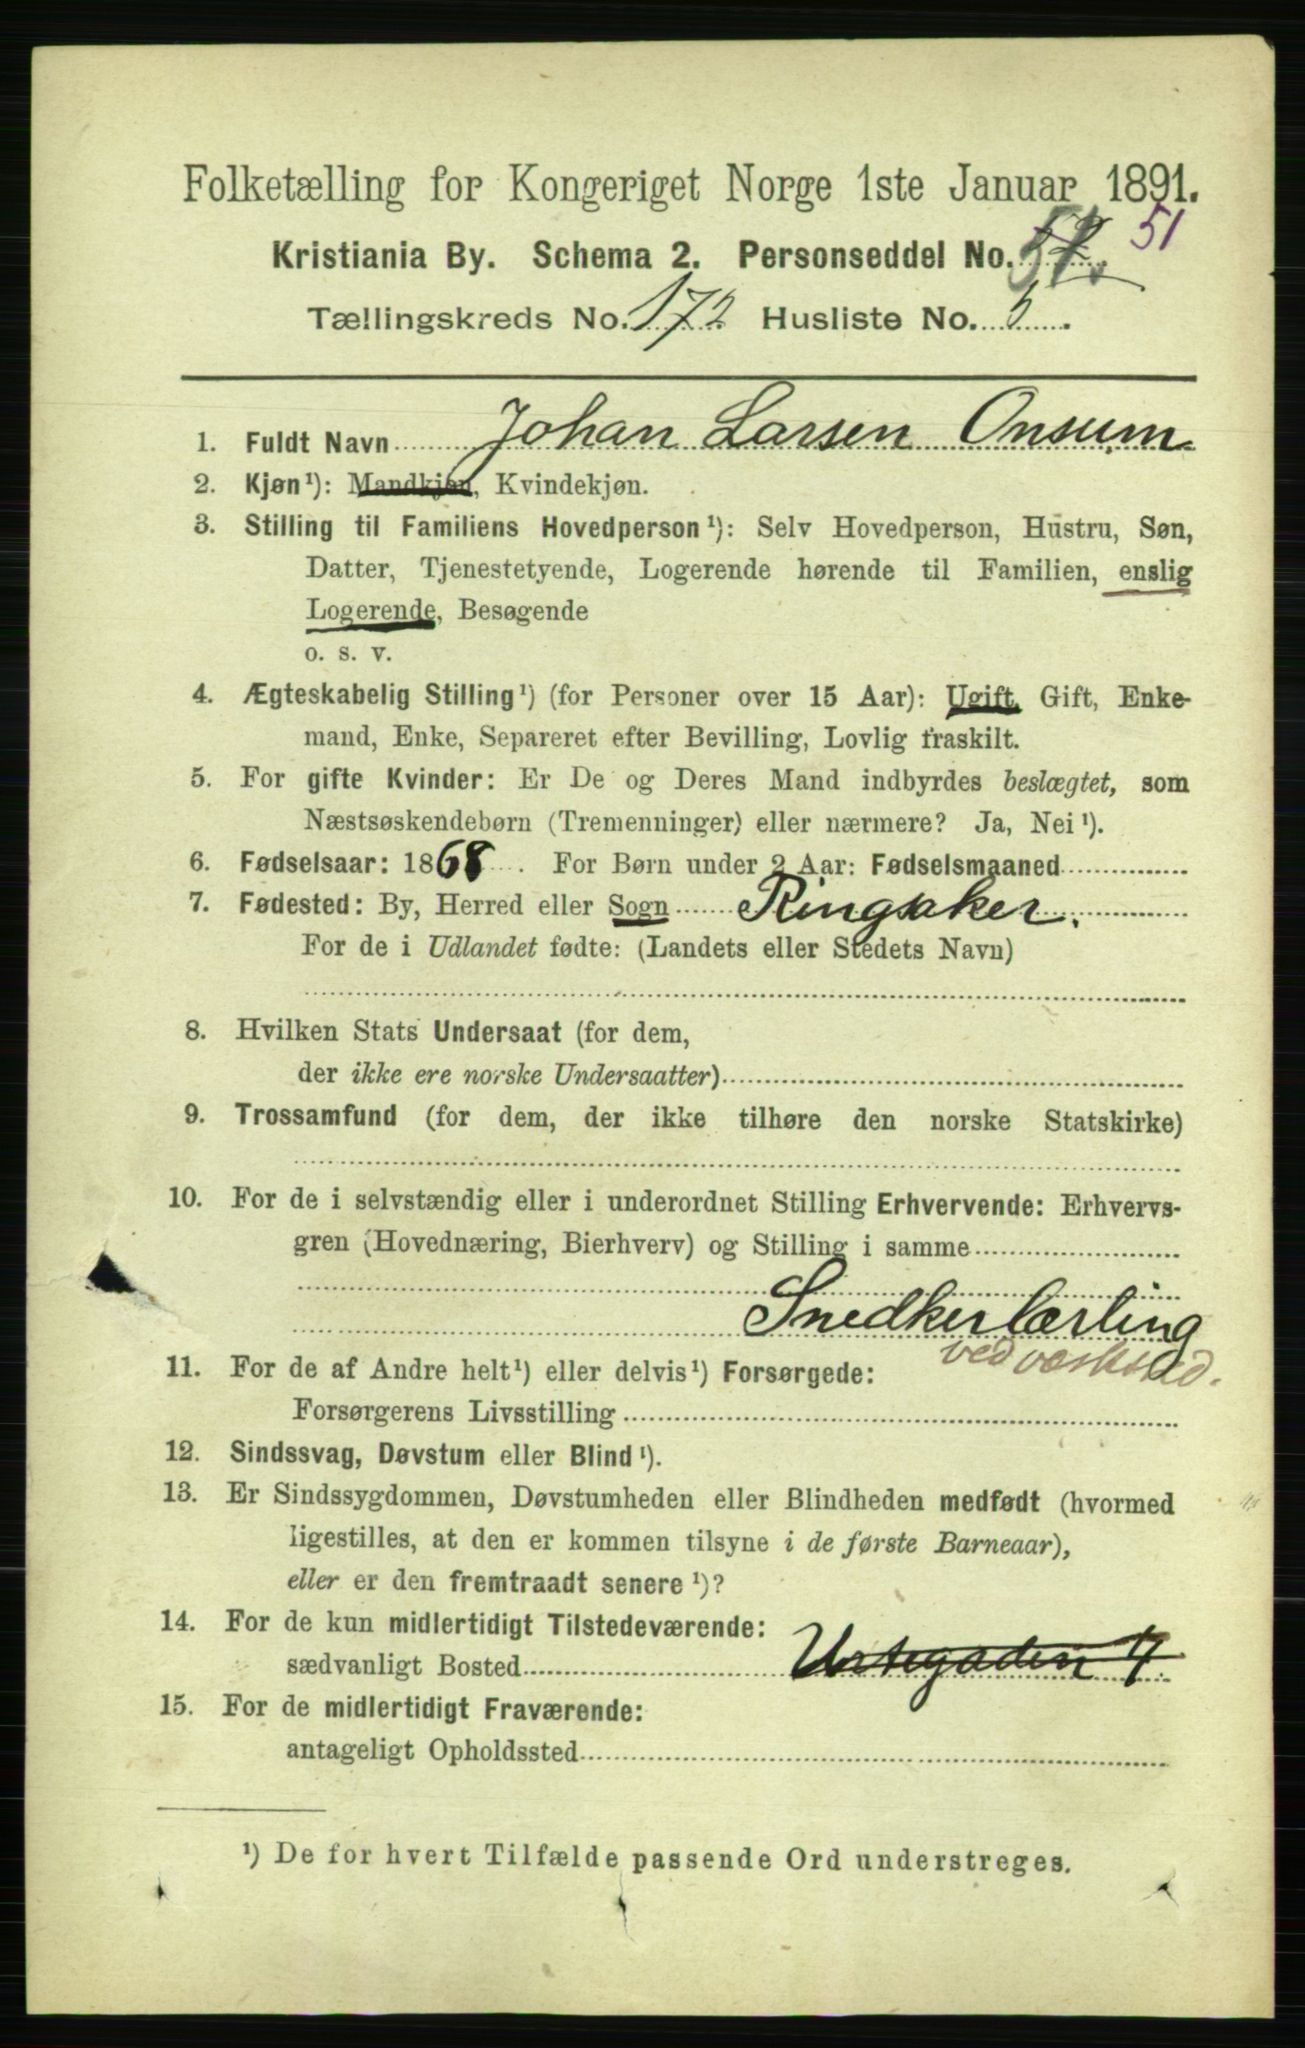 Folketælling for Kongeriget Norge 1ste Januar 1891.
Kristiania By. Schema 2. Personseddel No. 51
Tællingskreds No. 172 Husliste No. 5.
1. Fuldt Navn Johan Larsen Onsum
2. Kjøn¹): Mandkjøn, Kvindekjøn.
3. Stilling til Familiens Hovedperson¹): Selv Hovedperson, Hustru, Søn,
Datter, Tjenestetyende, Logerende hørende til Familien, enslig
Logerende, Besøgende
o. s. v.
4. Ægteskabelig Stilling¹) (for Personer over 15 Aar): Ugift, Gift, Enke-
mand, Enke, Separeret efter Bevilling, Lovlig fraskilt.
5. For gifte Kvinder: Er De og Deres Mand indbyrdes beslægtet, som
Næstsøskendebørn (Tremenninger) eller nærmere? Ja, Nei¹).
6. Fødselsaar: 1868. For Børn under 2 Aar: Fødselsmaaned
7. Fødested: By, Herred eller Sogn Ringsaker.
For de i Udlandet fødte: (Landets eller Stedets Navn)
8. Hvilken Stats Undersaat (for dem,
der ikke ere norske Undersaatter)
9. Trossamfund (for dem, der ikke tilhøre den norske Statskirke)
10. For de i selvstændig eller i underordnet Stilling Erhvervende: Erhvervs-
gren (Hovednæring, Bierhverv) og Stilling i samme
Snedkerlærling
ved værksted.
11. For de af Andre helt¹) eller delvis¹) Forsørgede:
Forsørgerens Livsstilling
12. Sindssvag, Døvstum eller Blind¹).
13. Er Sindssygdommen, Døvstumheden eller Blindheden medfødt (hvormed
ligestilles, at den er kommen tilsyne i de første Barneaar),
eller er den fremtraadt senere¹)?
14. For de kun midlertidigt Tilstedeværende:
sædvanligt Bosted Urtegaden 4
15. For de midlertidigt Fraværende:
antageligt Opholdssted
¹) De for hvert Tilfælde passende Ord understreges.